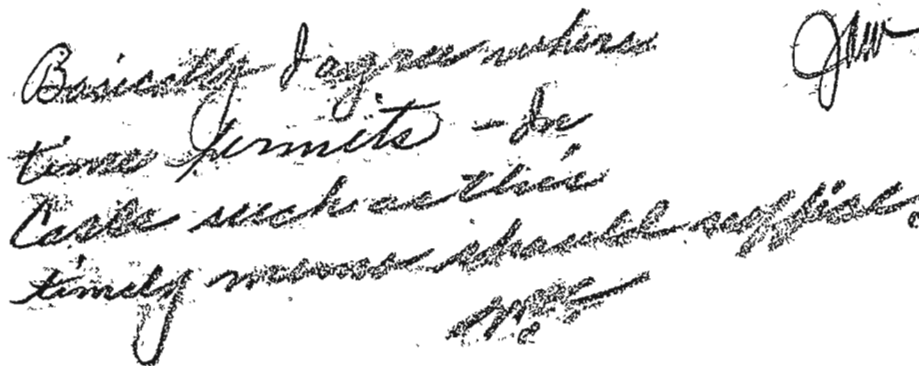 Jim
Basically I agree where
time permits - In
Cases such as this
timely memos should suffice.